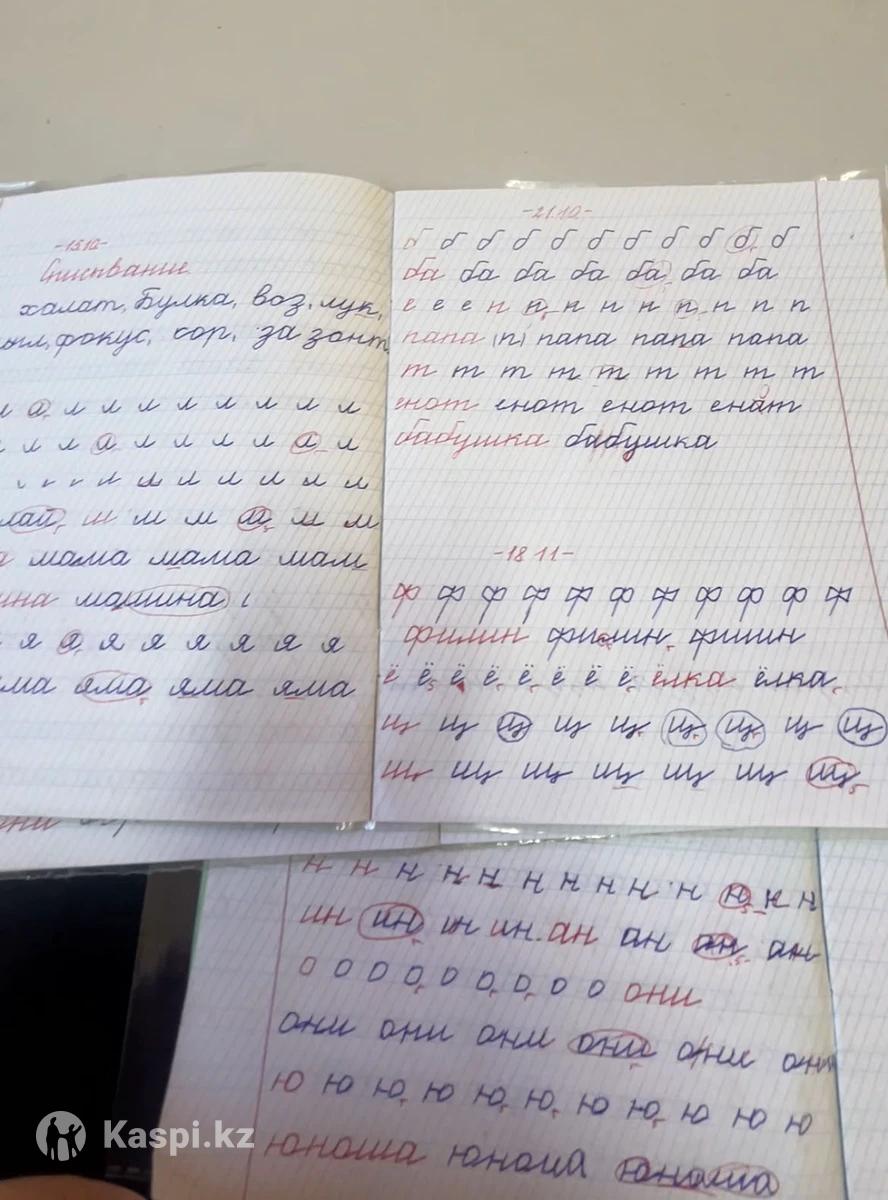 -15.10-
Списывание
халат, Булка, воз, лук,
фокус, сор, за зонт
л л л л л л л л л
л л л л л л л л л
л л л л л л л л
лай, м м м м м м
мама мама мам
машина
я я я я я я я я
яма яма яма
-21.10-
б б б б б б б б б б б
ба ба ба ба ба ба ба
е е е н н н н н н н н н
папа (п) папа папа папа
т т т т т т т т т т
енот енот енот енат
бабушка бабушка
-18 11-
ф ф ф ф ф ф ф ф ф ф ф
филин филин, фишин
ё ё ё ё ё ё ё ё ёлка ёлка
щ щ щ щ щ щ щ щ щ
щ щ щ щ щ щ щ
н н н н н н н н н н н н н
ин ин ин ин ан ан ан ан
о о о о о о о о о они
они они они они они они
ю ю ю ю ю ю ю ю ю ю ю
юноша юноша юноша
Kaspi.kz